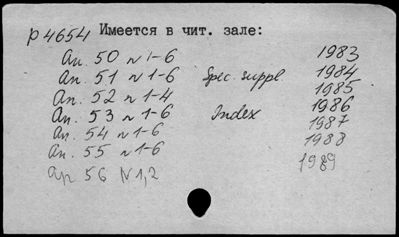 р 4654 Имеется в чит. зале:
An. 50 N 1-6 1983
An. 51 N 1-6 Spec. suppl 1984
An. 52 N 1-4 1985
An. 53 N 1-6 Index 1986
An. 54 N 1-6 1987
An. 55 N 1-6 1988
Ap 56 N 1,2 1989